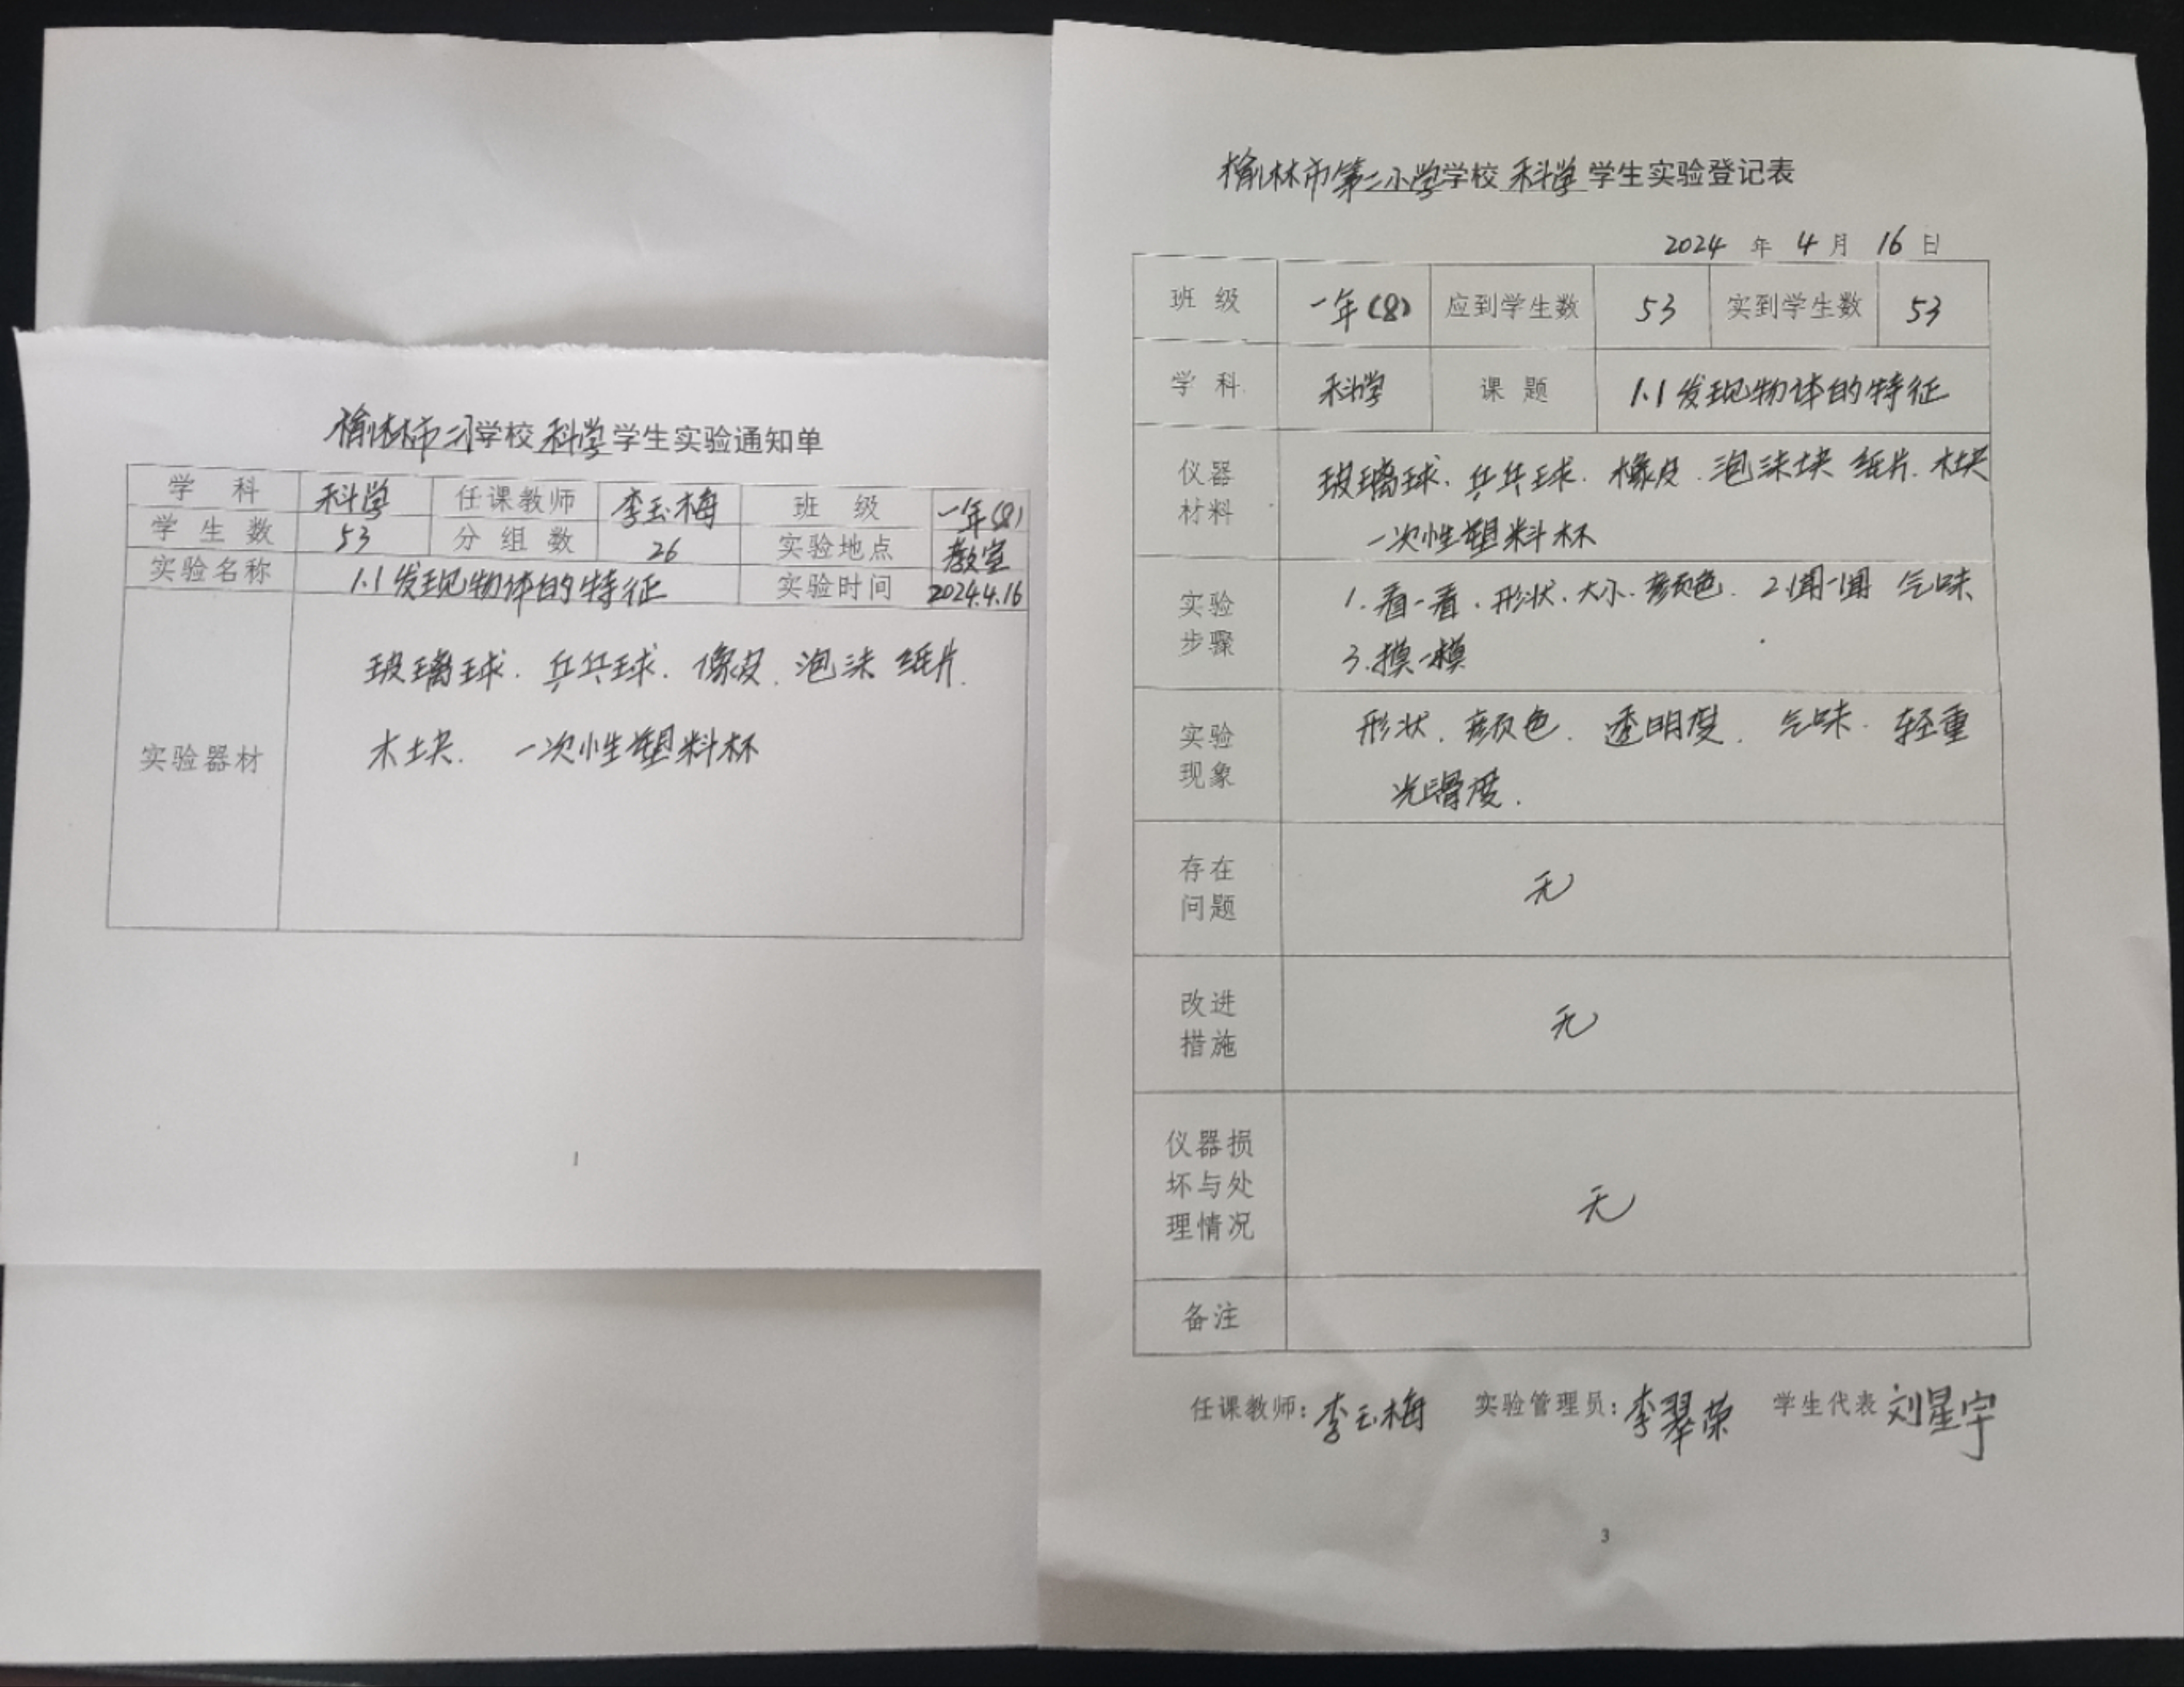 榆林市二小学校 科学 学生实验通知单
学 科 科学 任课教师 李玉梅 班 级 一年(8)
学 生 数 53 分 组 数 26 实验地点 教室
实验名称 1.1发现物体的特征 实验时间 2024.4.16
实验器材
玻璃球、乒乓球、像皮、泡沫 纸片、
木块、 一次性塑料杯
1
榆林市第二小学学校 科学 学生实验登记表
2024 年 4 月 16 日
班 级 一年(8) 应到学生数 53 实到学生数 53
学 科 科学 课 题 1.1发现物体的特征
仪器
材料
玻璃球、乒乓球、橡皮、泡沫块 纸片、木块
一次性塑料杯
实验
步骤
1.看一看、形状、大小、颜色、 2.闻一闻 气味
3.摸一摸
实验
现象
形状、颜色、透明度、气味、轻重
光滑度.
存在
问题
无
改进
措施
无
仪器损
坏与处
理情况
无
备注
任课教师：李玉梅 实验管理员：李翠荣 学生代表 刘星宇
3